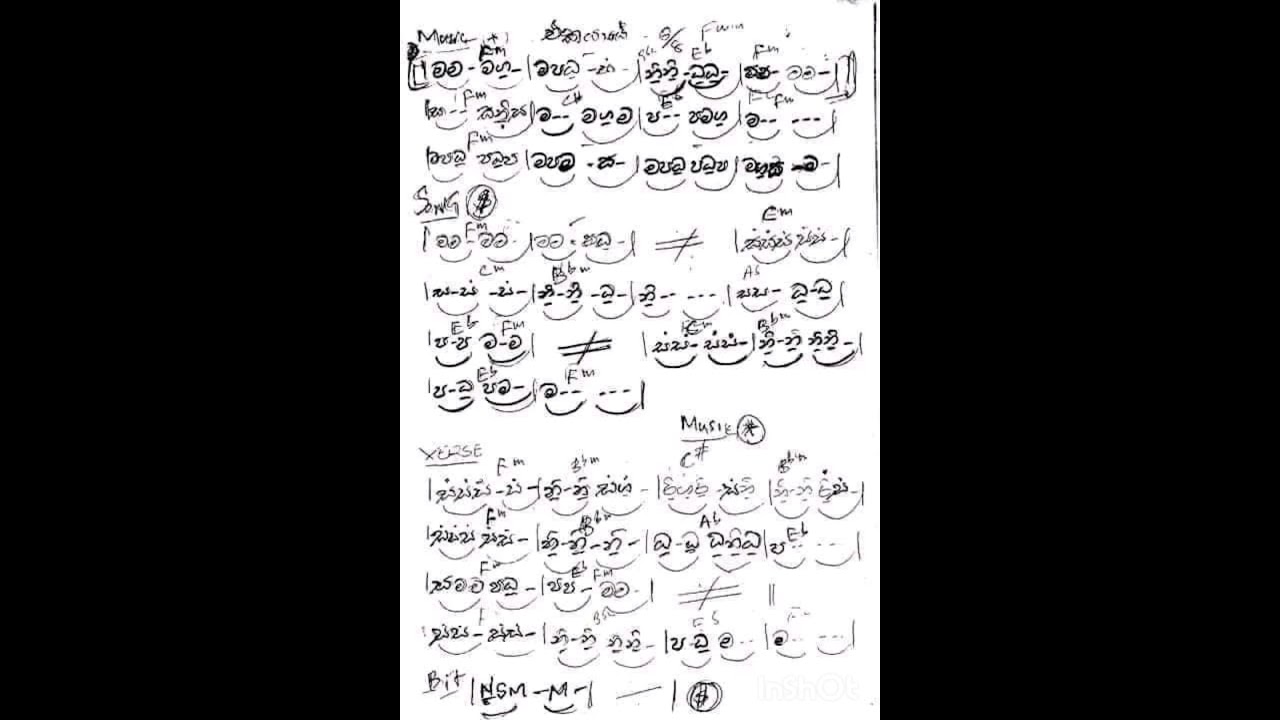 Music
6/8 Fm
Fm Eb Fm
| මම - මග - | මපධ - සං - | නිනි - ධධ - | පප - මම - |
Fm C# Eb Fm
| ස - - සනිස | ම - - මගම | ප - - පමග | ම - - - - - |
Fm
| මපධ පධප | මපම - ස - | මපධ පධප | - ම - |
SONG #
Fm Cm
| මම - මම - | මම - පධ - | ≠ | සංසංසං සංසං - |
Cm Bbm Ab
| ස - සං - සං - | නි - නි - ධ - | නි - - - - - | සස - ධ - ධ |
Eb Fm Bbm
| ප - ප ම - ම | ≠ | සංසං - සංසං - | නි - නි නිනි - |
Eb Fm
| ප - ධ පම - | ම - - - - - |
Music *
VERSE
Fm Bbm C# Bbm
| සංසංසං - සං - | නි - නි සංගං - | රිංගංරිං - සංනි | නි - නි රිංසං - |
Fm Bbm Ab Eb
| සංසංසං සංසං - | නි - නි - නි - | ධ - ධ ධනිධ | ප - - - - - |
Fm Eb Fm
| සමම පධ - | පප - මම - | ≠ ||
Eb
| සංසං - සංසං - | නි - නි නිනි - | ප - ධ ම - - | ම - - - - - |
Bit | NSM - M - | — | #
InShOt